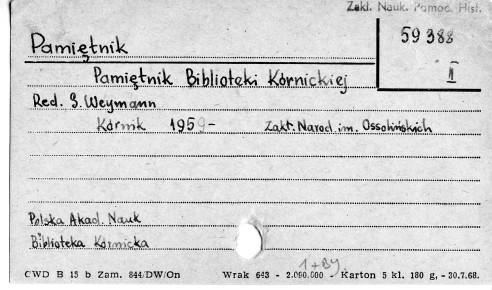 Zakl. Nauk. Pomoc. Hist.
59388
II
Pamiętnik
Pamiętnik Biblioteki Kórnickiej
Red. S. Weymann
Kórnik 1959- Zakł. Narod. im. Ossolińskich
Polska Akad. Nauk
Biblioteka Kórnicka
1+By
CWD B 15 b Zam. 844/DW/On Wrak 643 - 2.000.000 - Karton 5 kl. 180 g, - 30.7.68.